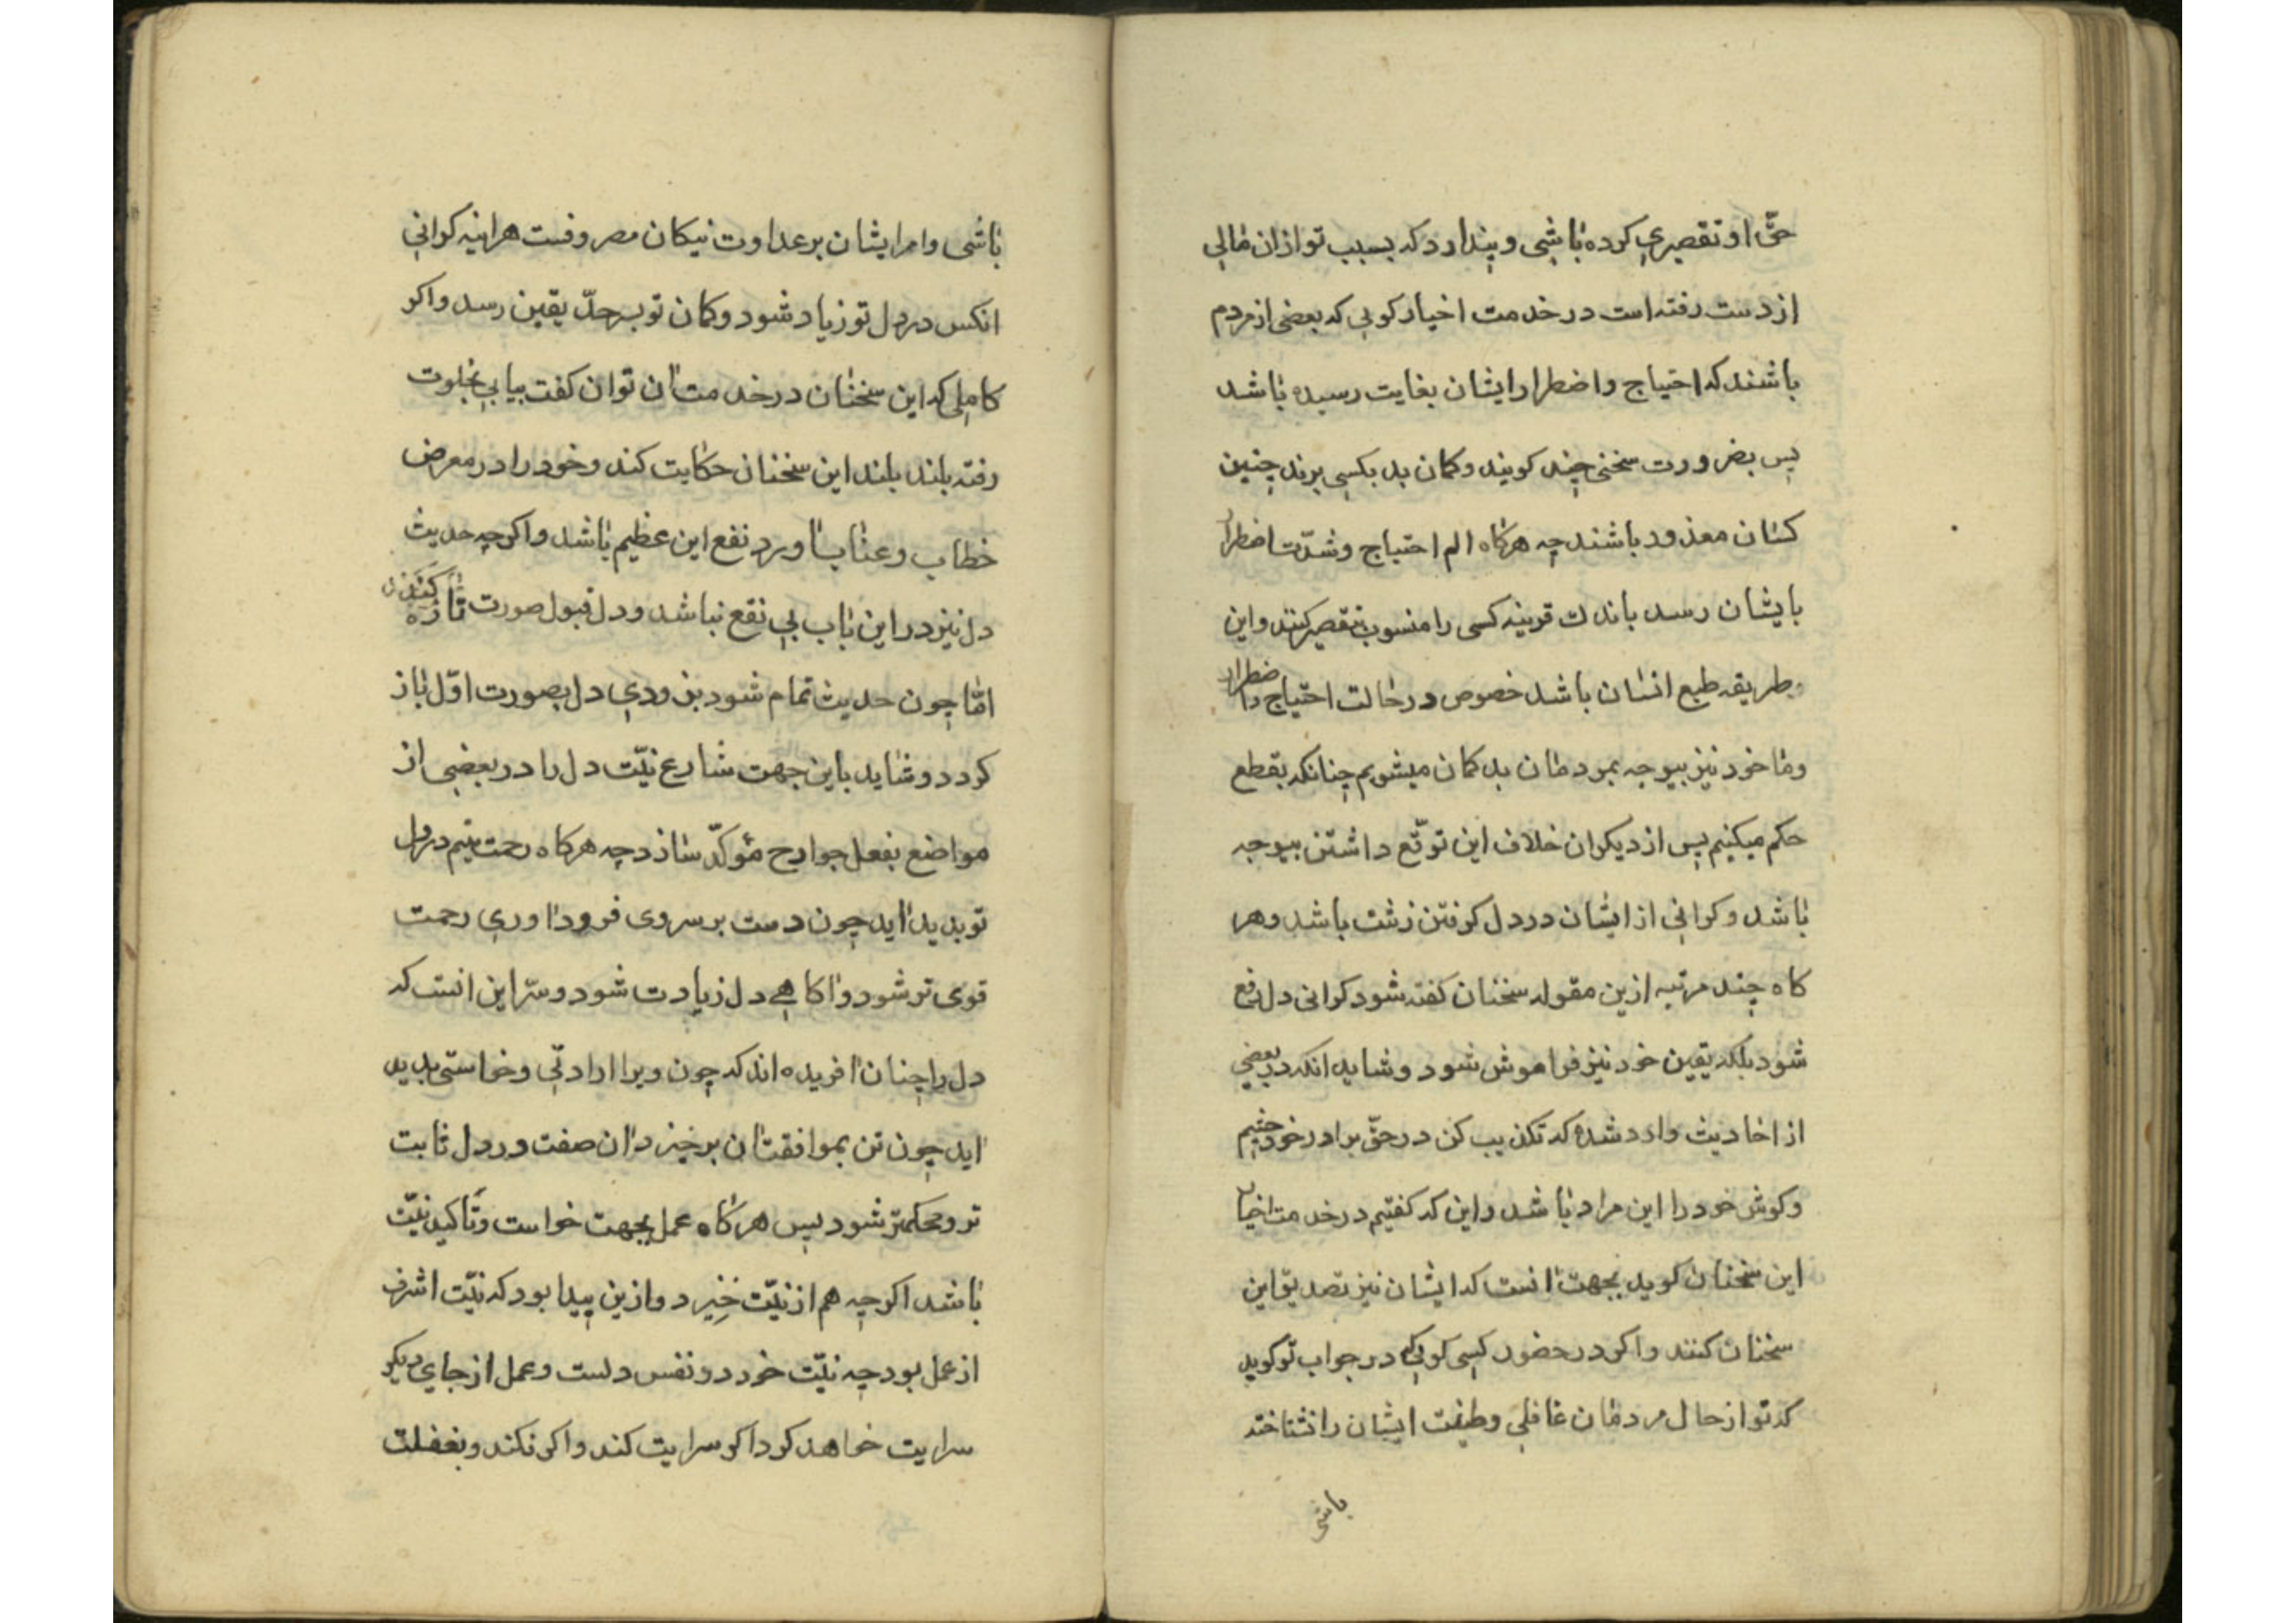 حقّ او تقصیری کرده باشی و پندارد که بسبب تو ازان مالی
از دست رفته است در خدمت اخیار کوئی که بعضی از مردم
باشند که احتیاج و اضطرار ایشان بغایت رسیده باشد
پس بضرورت سخنی چند کویند و کمان بد بکسی برند چنین
کسان معذور باشند چه هرکاه الم احتیاج و شدّت اضطرار
بایشان رسد باندک قرینه کسی را منسوب بتقصیر کنند و این
طریقه طبع انسان باشد خصوص در حالت احتیاج و اضطرار
و ما خود نیز بیوجه بمردمان بد کمان میشویم چنانکه بقطع
حکم میکنیم پس از دیکران خلاف این توقّع داشتن بیوجه
باشد و کرانی از ایشان در دل کرفتن زشت باشد و هر
کاه چند مرتبه ازین مقوله سخنان کفته شود کرانی دل رفع
شود بلکه یقین خود نیز فراموش شود و شاید انکه در بعضی
از احادیث وارد شده که تکذیب کن در حقّ برادر خود چشم
و کوش خود را این مراد باشد و این که کفتیم در خدمت اخیار
این سخنان کوید بجهت انست که ایشان نیز تصدیق این
سخنان کنند و اکر در حضور کسی کوئی که در جواب تو کوید
که تو از حال مردمان غافلی و طینت ایشان را نشناخته
باشی
باشی و امر ایشان بر عداوت نیکان مصروفست هراینه کرانی
انکس در دل تو زیاد شود و کمان تو بسرحدّ یقین رسد و اکر
کاملی که این سخنان در خدمت ان توان کفت نیابی بخلوت
رفته بلند بلند این سخنان حکایت کند و خود را در معرض
خطاب و عتاب اورد نفع این عظیم باشد و اکرچه حدیث
دل نیز در این باب بی نفع نباشد و دل قبول صورت تازه کند
امّا چون حدیث تمام شود بزودی دل بصورت اوّل باز
کردد و شاید باین جهت شارع نیّت دل را در بعضی از
مواضع بفعل جوارح مؤکّد سازد چه هرکاه رحمت یتیم در دل
تو بدید اید چون دست بر سر وی فرود اوری رحمت
قوی تر شود و اکاهی دل زیادت شود و سرّ این انست که
دل را چنان افریده اند که چون ویرا ارادتی و خواستی بدید
اید چون تن بموافقت ان برخیزد ان صفت در دل ثابت
تر و محکمتر شود پس هرکاه عمل بجهت خواست و تأکید نیّت
باشد اکرچه هم از نیّت خیزد و ازین پیدا بود که نیّت اشرف
از عمل بود چه نیّت خود در نفس دلست و عمل از جای دیکر
سرایت خواهد کرد اکر سرایت کند و اکر نکند و بغفلت